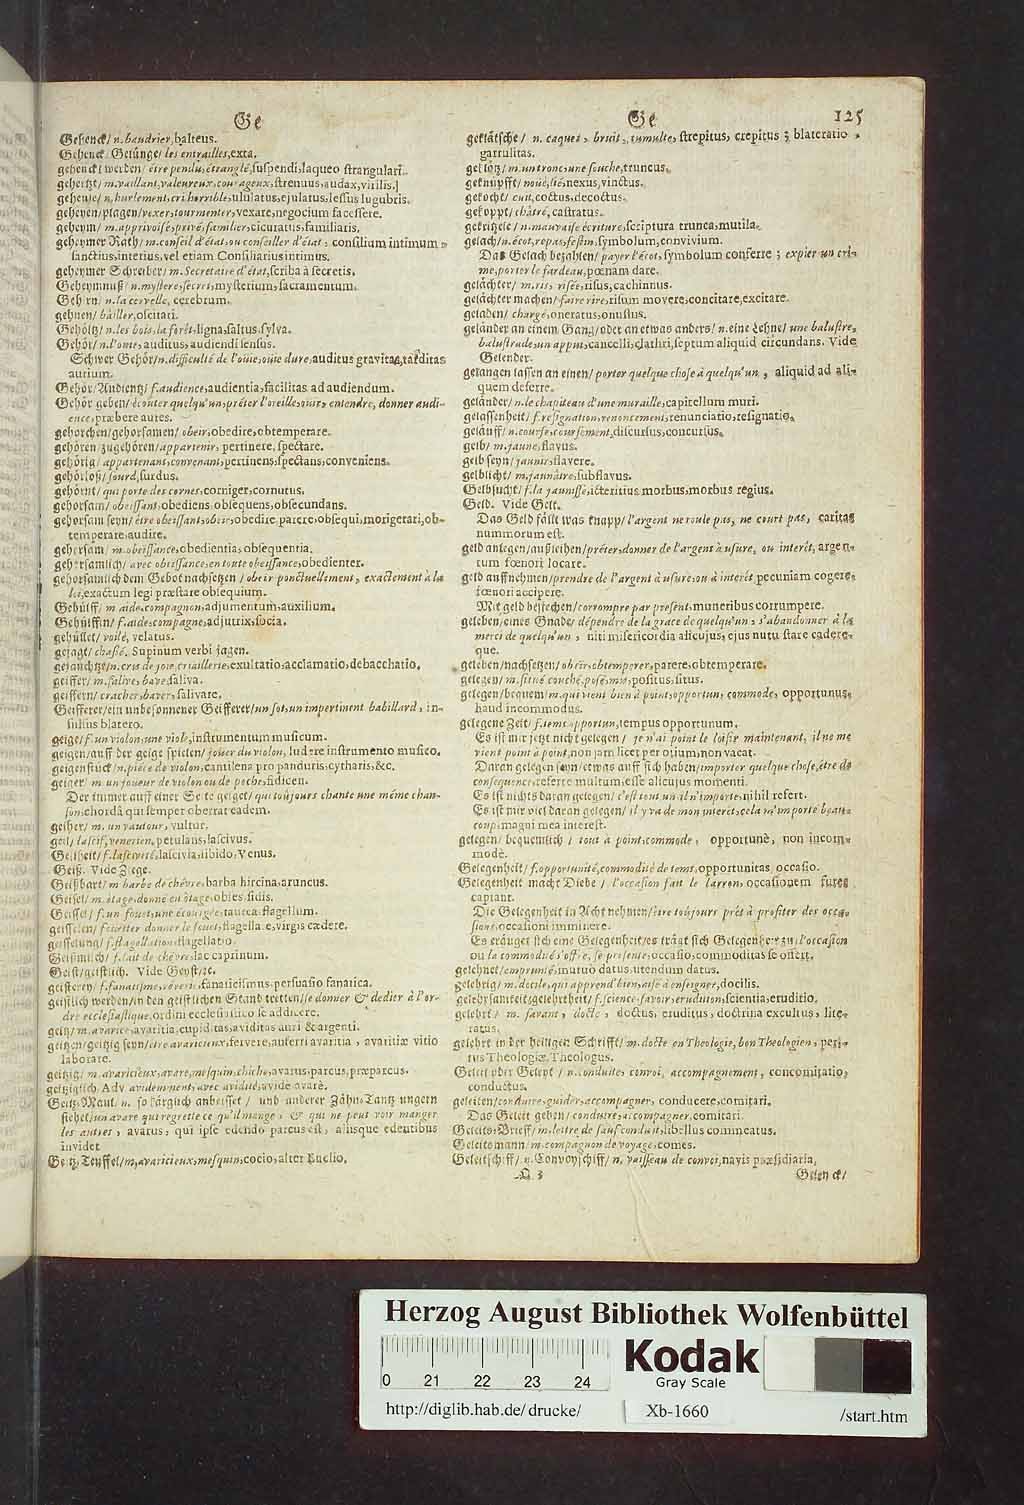 Ge
Ge
125
Gehenck/ n. baudrier, balteus.
Gehenck/ Gelünge/ les entrailles, exta.
gehenckt werden/ être pendu, étranglé, suspendi, laqueo strangulari.
gehertzt/ m. vaillant, valeureux, courageux, strenuus, audax, virilis.
geheule/ n. hurlement, cri horrible, ululatus, ejulatus, lessus lugubris.
geheyen/ plagen/ vexer, tourmenter, vexare, negocium facessere.
geheym/ m. apprivoisé, privé, familier, cicuratus, familiaris.
geheymer Rath/ m. conseil d'état, ou conseiller d'état, consilium intimum
sanctius, interius, vel etiam Consiliarius intimus.
geheymer Schreiber/ m. Secretaire d'état, scriba à secretis.
Geheymnuß/ n. mystere, secret, mysterium, sacramentum.
Gehirn/ n. la cervelle, cerebrum.
gehnen/ bâiller, oscitari.
Gehöltz/ n. les bois, la forêt, ligna, saltus, sylva.
Gehör/ n. l'ouïe, auditus, audiendi sensus.
Schwer Gehör/ n. difficulté de l'ouïe, ouïe dure, auditus gravitas, tarditas
aurium.
Gehör/ Audientz/ f. audience, audientia, facilitas ad audiendum.
Gehör geben/ écouter quelqu'un, préter l'oreille, ouïr, entendre, donner audi-
ence, præbere aures.
gehorchen/ gehorsamen/ obeïr, obedire, obtemperare.
gehören/ zugehören/ appartenir, pertinere, spectare.
gehörig/ appartenant, convenant, pertinens, spectans, conveniens.
gehörloß/ sourd, surdus.
gehörnt/ qui porte des cornes, corniger, cornutus.
gehorsam/ obeïssant, obediens, obsequens, obsecundans.
gehorsam seyn/ être obeïssant, obeïr, obedire, parere, obsequi, morigerari, ob-
temperare, audire.
gehorsam/ m. obeïssance, obedientia, obsequentia.
gehorsamlich/ avec obeïssance, en toute obeïssance, obedienter.
gehorsamlich dem Gebot nachsetzen/ obeïr ponctuellement, exactement à la
loi, exactum legi præstare obsequium.
Gehülff/ m aide, compagnon, adjumentum, auxilium.
Gehülffin/ f. aide, compagne, adjutrix, socia.
gehüllet/ voilé, velatus.
gejagt/ chassé. Supinum verbi jagen.
gejauchtze/ n. cris de joie, criaillerie, exultatio, acclamatio, debacchatio.
geiffer/ m. salive, bave, saliva.
geiffern/ cracher, baver, salivare.
Geifferer/ ein unbesonnener Geifferer/ un sot, un impertinent babillard, in-
sulsus blatero.
geige/ f. un violon, une viole, instrumentum musicum.
geigen/ auff der geige spielen/ jouer du violon, ludere instrumento musico.
geigenstück/ n. piéce de violon, cantilena pro panduris, cytharis, &c.
geiger/ m un joueur de violon ou de poche, fidicen.
Der immer auff einer Seite geiget/ qui toûjours chante une méme chan-
son, chordâ qui semper oberrat eadem.
geiher/ m. un vautour, vultur.
geil/ lascif, venerien, petulans, lascivus.
Geilheit/ f. lasciveté, lascivia, libido, Venus.
Geiß. Vide Ziege.
Geißbart/ m barbe de chévre, barba hircina, aruncus.
Geisel/ m. ôtage, donné en ôtage, obses fidis.
Geissel/ f. un fouet, une écourgée, taurea, flagellum.
geisselen/ fouëtter donner le fouet, flagellare, virgis cædere.
geisselung/ f. flagellation, flagellatio.
Geißmilch/ f. lait de chévre, lac caprinum.
Geist/ geistlich. Vide Geyst/ etc.
geisterey/ f. fanatisme, réverie, fanaticismus, persuasio fanatica.
geistlich werden/ in den geistlichen Stand tretten/ se donner & dedier à l'or-
dre ecclesiastique, ordini ecclesiastico se addicere.
geitz/ m. avarice, avaritia, cupiditas, aviditas auri & argenti.
geitzen/ geitzig seyn/ être avaricieux, fervere, auferri avaritia, avaritiæ vitio
laborare.
geitzig/ m. avaricieux, avare, mesquin, chiche, avarus, parcus, præparcus.
geitziglich, Adv. avidemment, avec avidité, avide, avarè.
Geitz-Maul/ n. so kärglich anbeisset/ und anderer Zähn-Tantz ungern
siehet/ un avare qui regrette ce qu'il mange, & qui ne peut voir manger
les autres, avarus, qui ipse edendo parcus est, aliisque edentibus
invidet.
Geitz-Teuffel/ m, avaricieux, mesquin, cocio, alter Euclio.
geklätsche/ n. caquet, bruit, tumulte, strepitus, crepitus; blateratio,
garrulitas.
geklötz/ m. un tronc, une souche, truncus.
geknüpfft/ noüé, lié, nexus, vinctus.
gekocht/ cuit, coctus, decoctus.
gekoppt/ châtré, castratus.
gekritzele/ n. mauvaise écriture, scriptura trunca, mutila.
gelach/ n. écot, repas, festin, symbolum, convivium.
Das Gelach bezahlen/ payer l'écot, symbolum conferre; expier un cri-
me, porter le fardeau, pœnam dare.
gelächter/ m. ris, risée, risus, cachinnus.
gelächter machen/ faire rire, risum movere, concitare, excitare.
geladen/ chargé, oneratus, onustus.
geländer an einem Gang/ oder an etwas anders/ n. eine Lehne/ une balustre,
balustrade, un appui, cancelli, clathri, septum aliquid circundans. Vide
Gelender.
gelangen lassen an einen/ porter quelque chose à quelqu'un, aliquid ad ali-
quem deferre.
geländer/ n. le chapiteau d'une muraille, capitellum muri.
gelassenheit/ f. resignation, renoncement, renunciatio, resignatio.
geläuff/ n. course, coursement, discursus, concursus.
gelb/ m. jaune, flavus.
gelb seyn/ jaunir, flavere.
gelblicht/ m. jaunâtre, subflavus.
Gelbsucht/ f. la jaunisse, icteritius morbus, morbus regius.
Geld. Vide Gelt.
Das Geld fällt was knapp/ l'argent ne roule pas, ne court pas, caritas
nummorum est.
geld anlegen/ außleihen/ préter, donner de l'argent à usure, ou interêt, argen-
tum fœnori locare.
geld auffnehmen/ prendre de l'argent à usure, ou à interêt, pecuniam cogere,
fœnori accipere.
Mit geld bestechen/ corrompre par present, muneribus corrumpere.
geleben/ eines Gnade/ dépendre de la grace de quelqu'un, s'abandonner à la
merci de quelqu'un, niti misericordia alicujus, ejus nutu stare cadere-
que.
geleben/ nachsetzen/ obeïr, obtemperer, parere, obtemperare.
gelegen/ m. situé couché, posé, mis, positus, situs.
gelegen/ bequem/ m. qui vient bien à point, opportun, commode, opportunus,
haud incommodus.
gelegene Zeit/ f. tems opportun, tempus opportunum.
Es ist mir jetzt nicht gelegen/ je n'ai point le loisir maintenant, il ne me
vient point à point, non jam licet per otium, non vacat.
Daran gelegen seyn/ etwas auff sich haben/ importer quelque chose, être de
consequence, referre multum, esse alicujus momenti.
Es ist nichts daran gelegen/ c'est tout un, il n'importe, nihil refert.
Es ist mir viel daran gelegen/ il y va de mon interêt, cela m'importe beau-
coup, magni mea interest.
gelegen/ bequemlich/ tout à point, commode, opportunè, non incom-
modè.
Gelegenheit/ f. opportunité, commodité de tems, opportunitas, occasio.
Gelegenheit macht Diebe/ l'occasion fait le larron, occasionem fures
captant.
Die Gelegenheit in Acht nehmen/ être toûjours prét à profiter des occa-
sions, occasioni imminere.
Es eräuget sich eine Gelegenheit/ es trägt sich Gelegenheit zu/ l'occasion
ou la commodité s'offre, se presente, occasio, commoditas se offert.
gelehnet/ emprunté, mutuò datus, utendum datus.
gelehrig/ m. docile, qui apprend bien, aisé à enseigner, docilis.
gelehrsamkeit, gelehrtheit/ f. science, savoir, erudition, scientia, eruditio.
gelehrt/ m. savant, docte, doctus, eruditus, doctrina excultus, lite-
ratus.
gelehrt in der heiligen Schrifft/ m. docte en Theologie, bon Theologien, peri-
tus Theologiæ, Theologus.
Geleit oder Geleyt/ n. conduite, convoi, accompagnement, concomitatio,
conductus.
geleiten/ conduire, guider, accompagner, conducere, comitari.
Das Geleit geben/ conduire, accompagner, comitari.
Geleits-Brieff/ m. lettre de sauf conduit, libellus commeatus.
Geleitsmann/ m. compagnon de voyage, comes.
Geleitschiff/ n. Convoyschiff/ n. vaisseau de convoi, navis præsidiaria,
Q. 3
Gelenck/
Herzog August Bibliothek Wolfenbüttel
0 21 22 23 24
Kodak
Gray Scale
http://diglib.hab.de/drucke/
Xb-1660
/start.htm